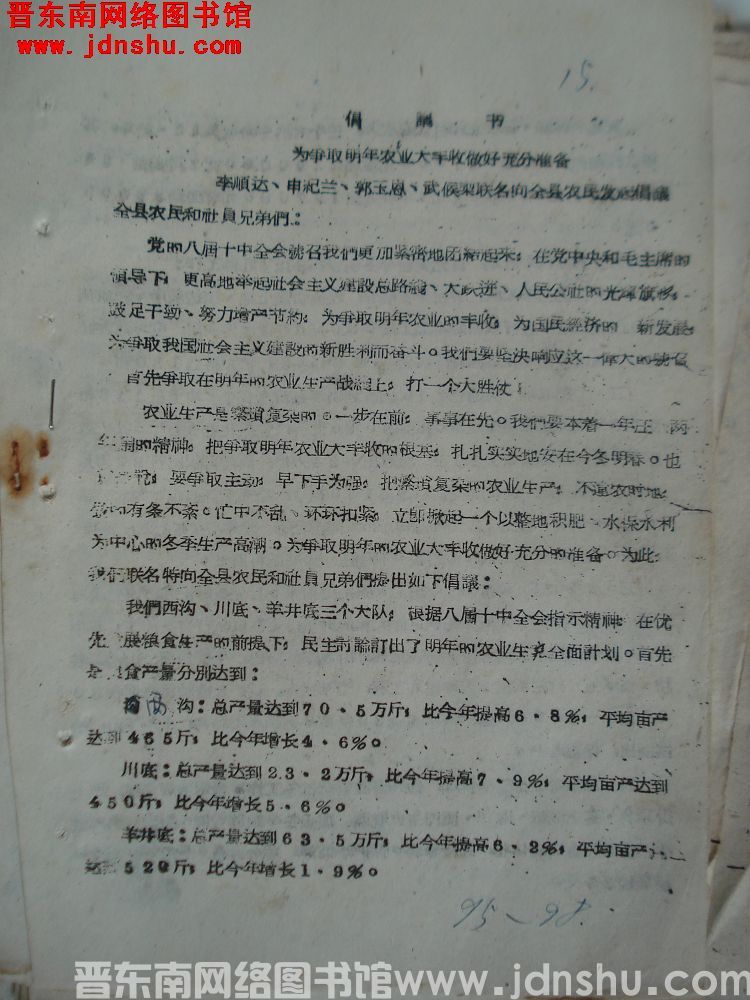 晋东南网络图书馆
www.jdnshu.com
15.
倡議书
为争取明年农业大丰收做好充分准备
李順达、申紀兰、郭玉恩、武候梨联名向全县农民发起倡議
全县农民和社員兄弟們：
党的八届十中全会號召我們更加紧密地团結起来，在党中央和毛主席的
領导下，更高地举起社会主义建設总路綫、大跃进、人民公社的光輝旗帜，
鼓足干劲、努力增产节約，为争取明年农业的丰收，为国民經济的新发展，
为争取我国社会主义建設的新胜利而奋斗。我們要坚决响应这一偉大的號召
首先争取在明年的农业生产战綫上，打一个大胜仗
农业生产是繁瑣复杂的。一步在前，事事在先。我們要本着一年庄 两
年 的精神，把争取明年农业大丰收的根基，扎扎实实地安在今冬明春。也
要争取主动，早下手为强，把繁瑣复杂的农业生产，不違农时地，
的有条不紊。忙中不乱、环环扣紧，立即掀起一个以整地积肥、水保水利
为中心的冬季生产高潮。为争取明年的农业大丰收做好充分的准备。为此，
我們联名特向全县农民和社員兄弟們提出如下倡議：
我們西沟、川底、羊井底三个大队，根据八届十中全会指示精神 在优
先 展粮食生产的前提下，民主討論訂出了明年的农业生产全面計划。首先
食产量分别达到：
西沟：总产量达到70.5万斤，比今年提高6.8%，平均亩产
达到465斤，比今年增长4.6%。
川底：总产量达到23.2万斤，比今年提高7.9%，平均亩产达到
450斤，比今年增长5.6%。
羊井底：总产量达到63.5万斤，比今年提高6.2%，平均亩产
达 520斤，比今年增长1.9%。
95-98.
晋东南网络图书馆www.jdnshu.com